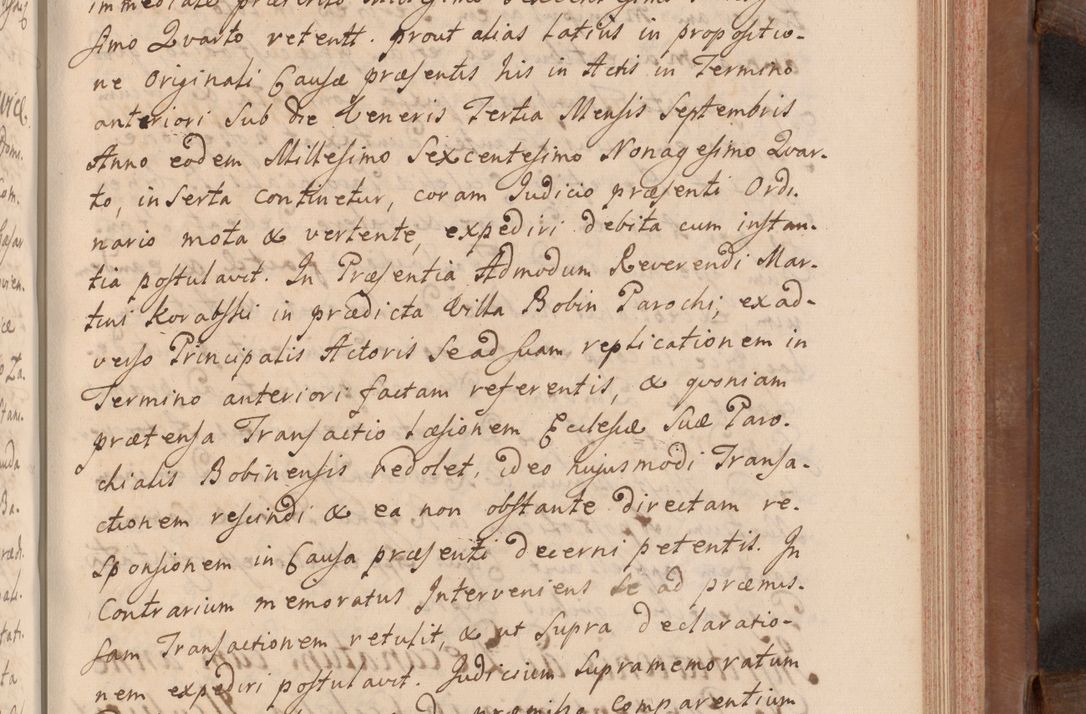 simo Qvarto retentt. prout alias latius in propositio-
ne Originali Causæ præsentis his in Actis in Termino
anteriori Sub die Veneris Tertia Mensis Septembris
Anno eodem Millesimo Sexcentesimo Nonagesimo Qvar-
to, inserta continetur, coram Judicio præsenti Ordi-
nario mota & vertente, expediri debita cum instan-
tia postulavit. In Præsentia Admodum Reverendi Mar-
tini Korabski in prædicta Villa Bobin Parochi, ex ad-
verso Principalis Actoris Se ad suam replicationem in
Termino anteriori factam referentis, & qvoniam
prætensa Transactio Læsionem Ecclesiæ Suæ Paro-
chialis Bobinensis redolet, ideo hujusmodi Transa-
ctionem rescindi & ea non obstante directam re-
sponsionem in Causa præsenti decerni petentis. In
Contrarium memoratus Interveniens se ad præmis-
sam Transactionem retulit, & ut supra declaratio-
nem expediri postulavit. Judicium supramemoratum
præmissa Comparentium